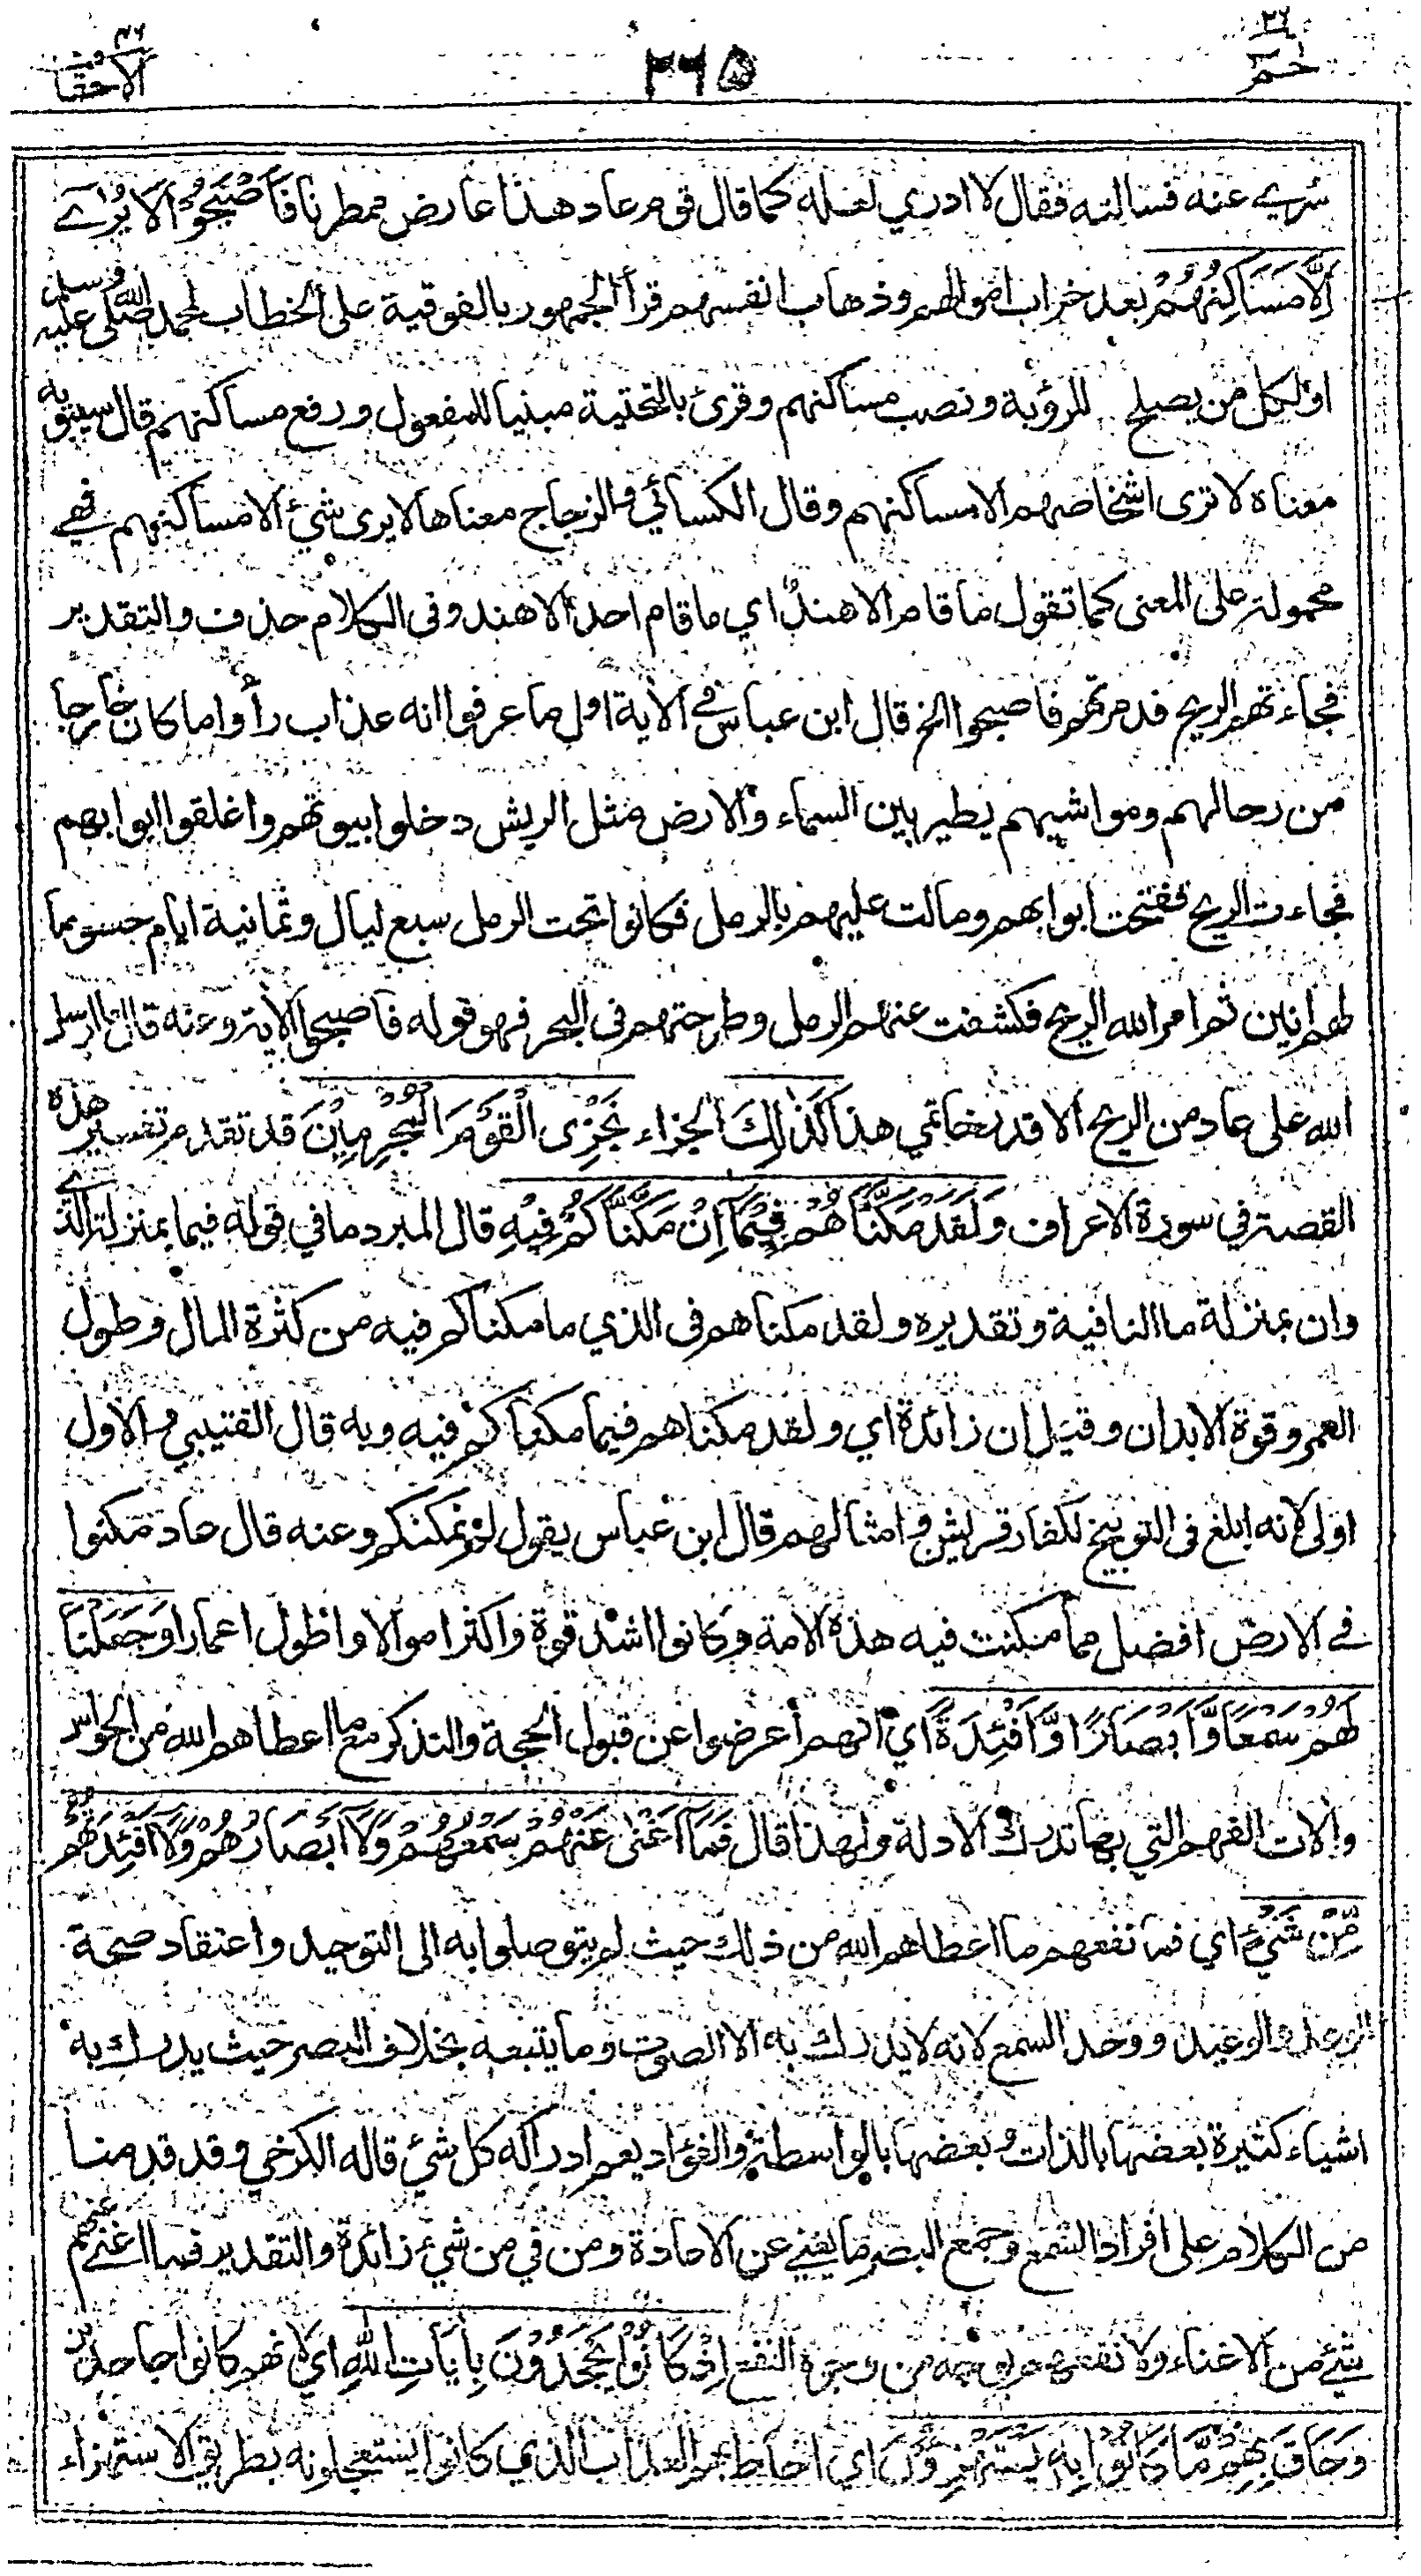 ٢٦
حم
٣٦٥
٤٦
الاحقاف
سري عنه فسالته فقال لا ادري لعله كما قال قوم عاد هذا عارض ممطرنا فَاَصْبَحُوْا لَا يُرٰى
اِلَّا مَسَاكِنُهُمْ بعد خراب اموالهم وذهاب انفسهم قرأ الجمهور بالفوقية على الخطاب لمحمد صلى الله عليه وسلم
او لكل من يصلح للرؤية ونصب مساكنهم وقرئ بالتحتية مبنيا للمفعول ورفع مساكنهم قال سيبويه
معناه لا ترى اشخاصهم الا مساكنهم وقال الكسائي والزجاج معناها لا يرى شئ الا مساكنهم فهي
محمولة على المعنى كما تقول ما قام الا هندٌ اي ما قام احد الا هند وفى الكلام حذف والتقدير
فجاءتهم الريح فدمرتهم فاصبحوا الخ قال ابن عباس في الاية اول ما عرفوا انه عذاب رأوا ما كان خارجا
من رحالهم ومواشيهم يطير بين السماء والارض مثل الريش دخلوا بيوتهم واغلقوا ابوابهم
فجاءت الريح ففتحت ابوابهم ومالت عليهم بالرمل فكانوا تحت الرمل سبع ليال وثمانية ايام حسوما
لهم انين ثم امر الله الريح فكشفت عنهم الرمل وطرحتهم فى البحر فهو قوله فاصبحوا الاية وعنه قال ما ارسل
الله على عاد من الريح الا قدر خاتمي هذا كَذٰلِكَ الجزاء نَجْزِى الْقَوْمَ الْمُجْرِمِيْنَ قد تقدم تفسير هذه
القصة في سورة الاعراف وَلَقَدْ مَكَّنَّاهُمْ فِيْمَا اِنْ مَكَّنَّاكُمْ فِيْهِ قال المبرد ما في قوله فيما بمنزلة الذي
وان بمنزلة ما النافية وتقديره ولقد مكناهم فى الذي ما مكناكم فيه من كثرة المال وطول
العمر وقوة الابدان وقيل ان زائدة اي ولقد مكناهم فيما مكناكم فيه وبه قال القتيبي والاول
اولى لانه ابلغ فى التوبيخ لكفار قريش وامثالهم قال ابن عباس يقول لم نمكنكم وعنه قال عاد مكنوا
في الارض افضل مما مكنت فيه هذه الامة وكانوا اشد قوة واكثر اموالا واطول اعمارا وَجَعَلْنَا
لَهُمْ سَمْعًا وَّاَبْصَارًا وَّاَفْئِدَةً اي انهم أعرضوا عن قبول الحجة والتذكر مع ما اعطاهم الله من الحواس
والات الفهم التي بها تدرك الادلة ولهذا قال فَمَا اَغْنٰى عَنْهُمْ سَمْعُهُمْ وَلَا اَبْصَارُهُمْ وَلَا اَفْئِدَتُهُمْ
مِّنْ شَيْءٍ اي فما نفعهم ما اعطاهم الله من ذلك حيث لم يتوصلوا به الى التوحيد واعتقاد صحة
الوعد والوعيد ووحد السمع لانه لا يدرك به الا الصوت وما يتبعه بخلاف البصر حيث يدرك به
اشياء كثيرة بعضها بالذات وبعضها بالواسطة والفؤاد يعم ادراكه كل شئ قاله الكرخي وقد قدمنا
من الكلام على افراد السمع وجمع البصر ما يغني عن الاعادة ومن في من شئ زائدة والتقدير فما اغنى عنهم
شئ من الاغناء ولا نفعهم بوجه من وجوه النفع اِذْ كَانُوْا يَجْحَدُوْنَ بِاٰيَاتِ اللهِ اي لانهم كانوا جاحدين
وَحَاقَ بِهِمْ مَّا كَانُوْا بِهٖ يَسْتَهْزِءُوْنَ اي احاط بهم العذاب الذي كانوا يستعجلونه بطريق الاستهزاء